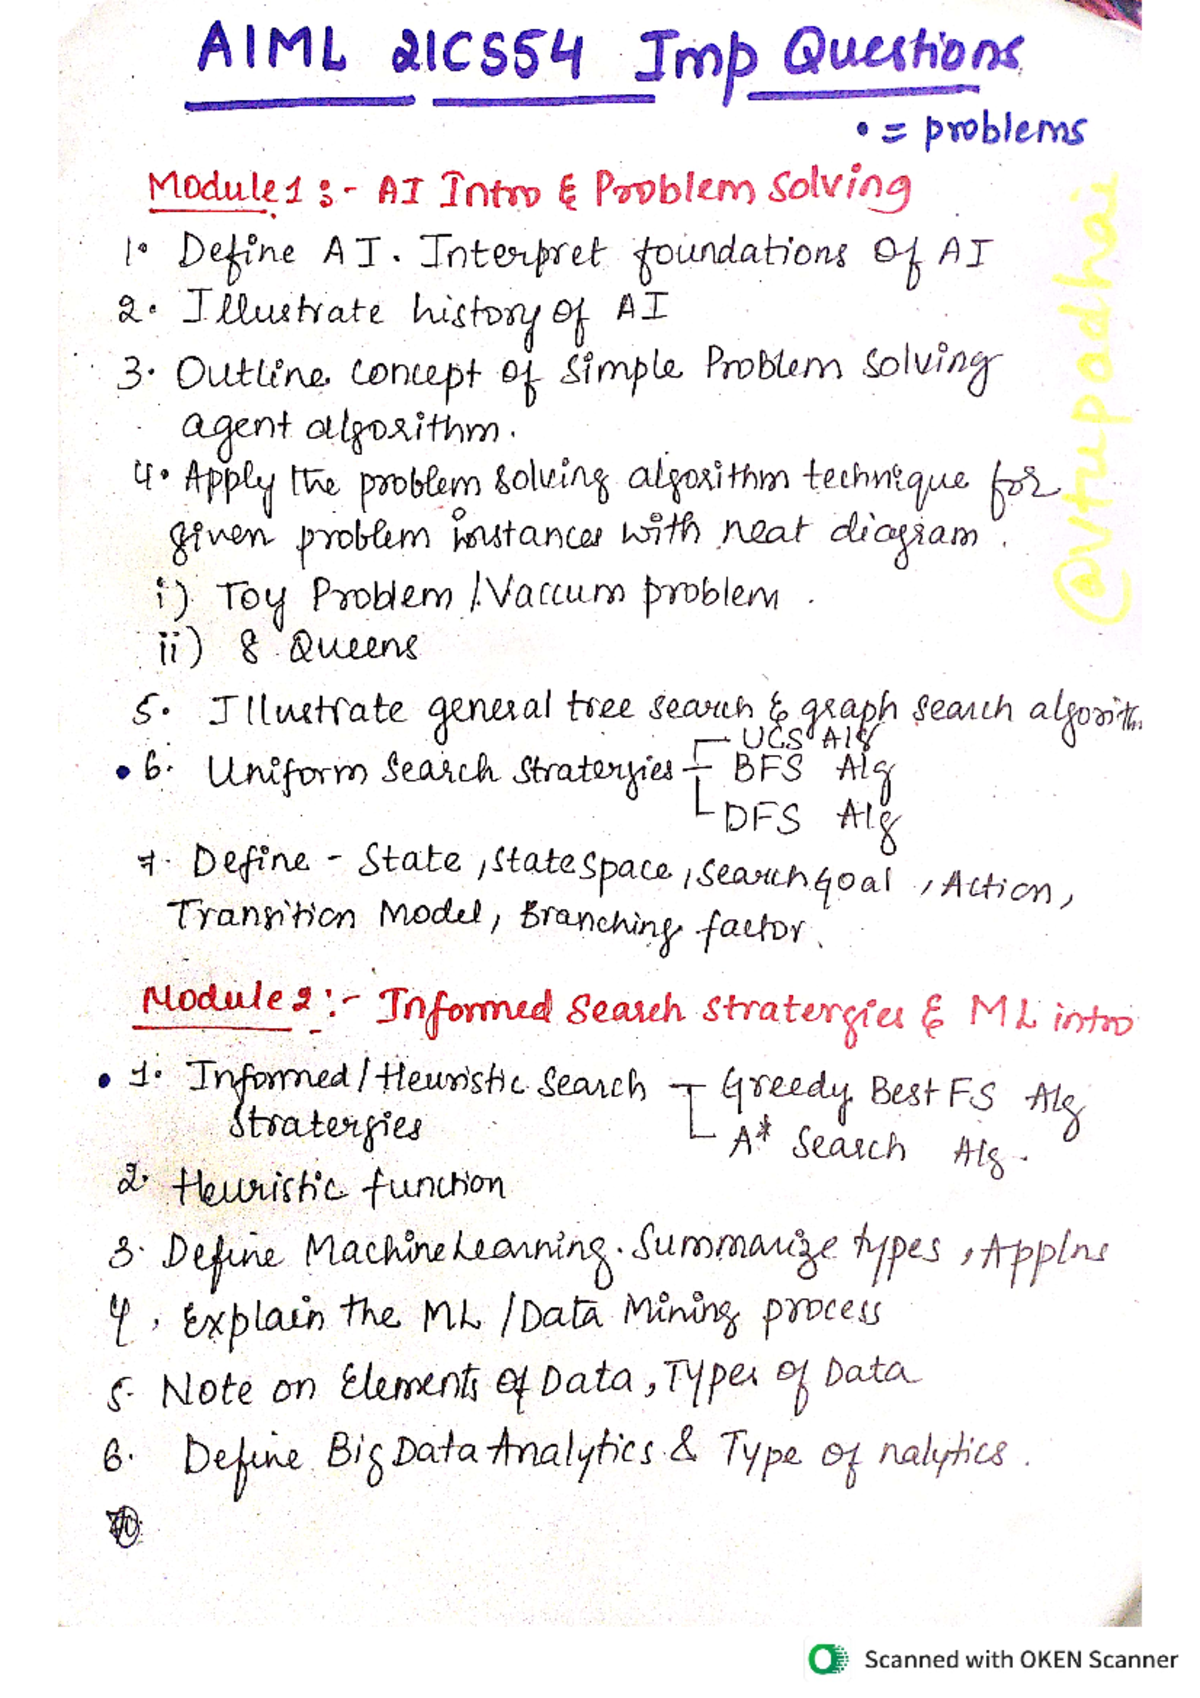 AIML 21CS54 Imp Questions
• = problems
Module 1 :- AI Intro & Problem Solving
1. Define AI. Interpret foundations of AI
2. Illustrate history of AI
3. Outline concept of Simple Problem Solving
agent algorithm.
4. Apply the problem solving algorithm technique for
given problem instances with neat diagram.
i) Toy Problem / Vaccum problem.
ii) 8 Queens
5. Illustrate general tree search & graph search algorith
UCS Alg
• 6. Uniform Search Stratergies BFS Alg
DFS Alg
7. Define - State, State Space, Search Goal, Action,
Transition Model, Branching factor.
Module 2 :- Informed Search Stratergies & ML intro
• 1. Informed / Heuristic Search Greedy Best FS Alg
Stratergies A* Search Alg.
2. Heuristic function
3. Define Machine Learning. Summarize types, Applns
4. Explain the ML / Data Mining process
5. Note on Elements of Data, Types of Data
6. Define Big Data Analytics & Type of nalytics.
@vtupadhai
Scanned with OKEN Scanner